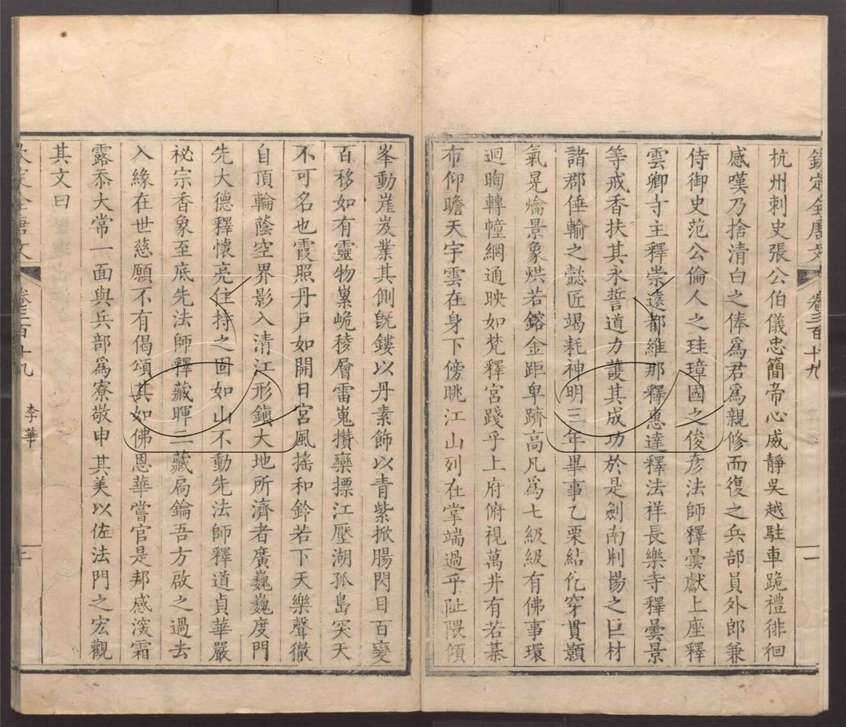 欽定全唐文
卷三百十九
一
杭州刺史張公伯儀忠簡帝心威靜吳越駐車跪禮徘徊
感嘆乃捨清白之俸爲君爲親修而復之兵部員外郎兼
侍御史范公倫人之珪璋國之俊彥法師釋曇獻上座釋
雲卿寺主釋崇遠都維那釋惠達釋法祥長樂寺釋曇景
等戒香扶其永誓道力護其成功於是劍南荆揚之巨材
諸郡倕輸之懿匠竭耗神明三年畢事乙栗結仡穿貫顥
氣晃爚景象烘若鎔金距卑躋高凡爲七級級有佛事環
迴晌轉幢網通映如梵釋宮踐乎上府俯視萬井有若棊
布仰瞻天宇雲在身下傍眺江山列在掌端過乎阯隈傾
峯動崖岌業其側旣鏤以丹素飾以青紫掀腸閃目百變
百移如有靈物業峗稜層雷嵬攢欒摽江壓湖孤島突天
不可名也霞照丹戶如開日宮風搖和鈴若下天樂聲徹
自頂輪蔭空界影入清江形鎮大地所濟者廣巍巍度門
先大德釋懷亮住持之固如山不動先法師釋道貞華嚴
祕宗香象至底先法師釋藏暉三藏扃鑰吾方啟之過去
入緣在世慈願不有偈頌其如佛恩華嘗官是邦感深霜
露忝大常一面與兵部爲寮敬申其美以佐法門之宏觀
其文曰
欽定全唐文
卷三百十九
李華